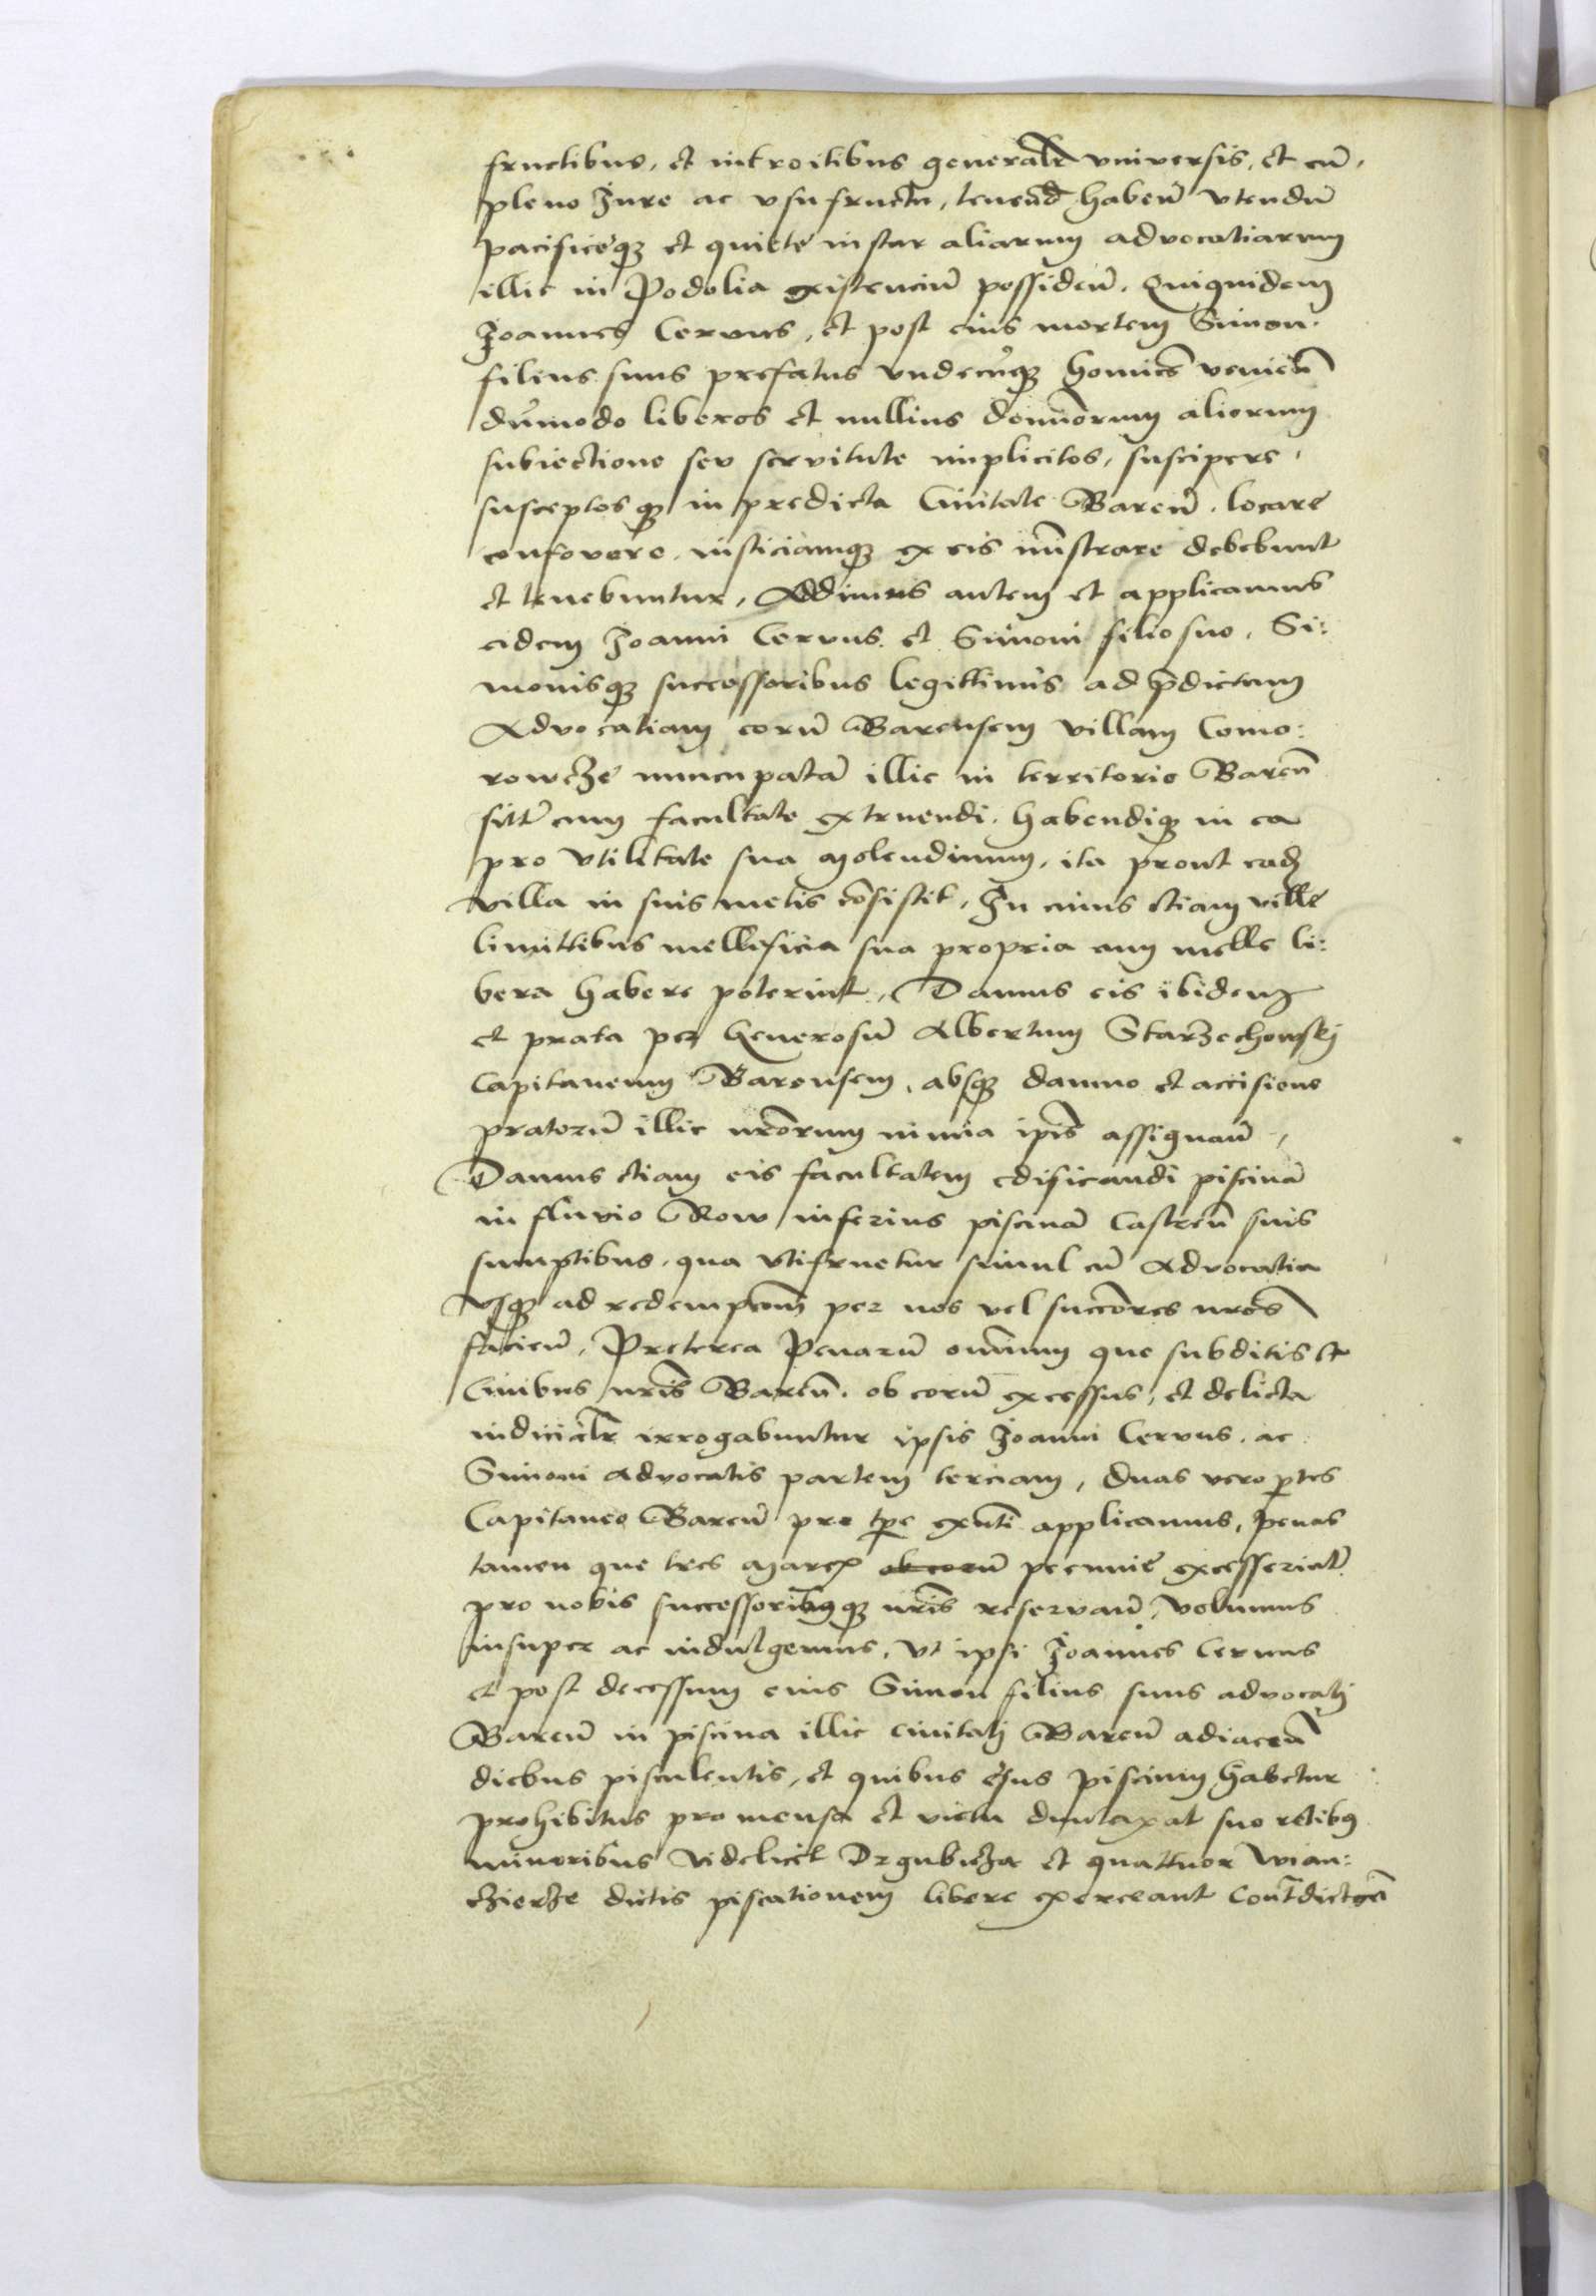 fructibus, et introitibus generalr̄ vniversis, et cū,
pleno Jure ac vsufructu, tenend̄ habeñ vtendū
pacificeq̃ et quiete instar aliarum advocatiarum
illic in Podolia existenciū possideñ. Quiquidem
Joannes Cervus, et post eius mortem Simon.
filius suus prefatus vndecūq̃ homiēs venieñ
dūmodo liberos et nullius domiōrum aliorum
subiectione seu servitute implicitos, suscipere,
susceptosq̃ in predicta Civitate Bareñ. locare
confovere, iusticiamq̃ ex eis mīstrare debebunt
et tenebuntur, Addimus autem et applicamus
eidem Joanni Cervus et Simoni filio suo, Si:
monisq̃ successoribus legittimis ad p̄dictam
Advocatiam eorū Barensem villam Como:
rowcze nuncupatā illic in territorio Bareñ
sitt̄ cum facultate extruendi, habendiq̃ in ea
pro vtilitate sua molendinum, ita prout eadȝ
villa in suis metis cōsistit, In cuius etiam ville
limittibus mellificia sua propria cum melle li:
bera habere poterint, Damus eis ibidem
et prata per Generosū Albertum Starzechowskj
Capitaneum Barensem, absq̃ damno et accisione
pratorū illic nrōrum nimia ipīs assignañ,
Damus etiam eis facultatem edificandi piscinā
in fluvio Row inferius piscinā Castreñ suis
sumptibus, qua vtifruetur simul cū Advocatia
vsq̃ ad redempcōm̄ per nos vel succōres nrōs
facieñ, Preterea Penarū omnium que subditis et
Civibus nrīs Bareñ. ob eorū excessus, et delicta
iudicialr̄ irrogabuntur ipsis Joanni Cervus, ac
Simoni advocatis partem terciam, duas vero p̄tes
Capitaneo Bareñ pro tp̄e exn̄ti applicamus, penas
tamen que tres marcȩ ob eorū pecunie excesserint
pro nobis successoribusq̃ nrīs reservañ, volumus
insuper ac indulgemus, vt ipsi Joannes Cervus
et post decessum eius Simon filius suus advocatj
Bareñ in piscina illic civitatj Bareñ adiaceñ
diebus pisculentis, et quibus esus piscium habetur
prohibitus pro mensa et victu duntaxat suo retibus
minoribus videlicet Drgubicza et quattuor wian:
czierze dictis piscationem libere exerceant Cont̄dict̄